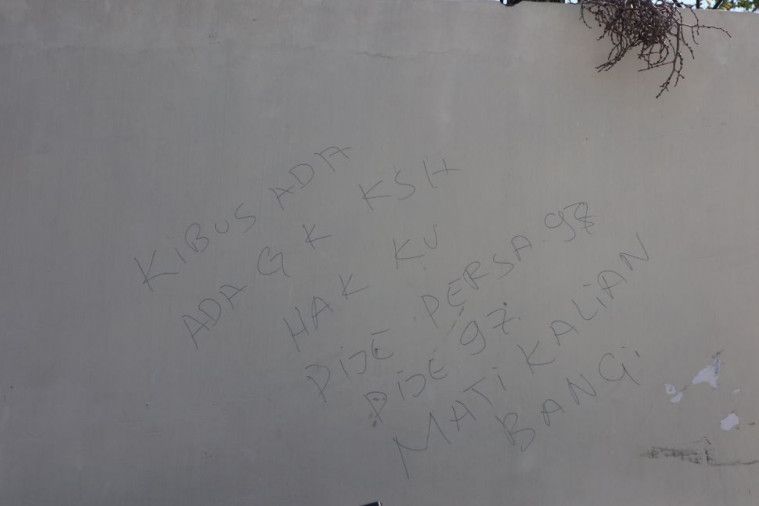 KiBUS ADA
ADA GK KSH
HAK KU
PIJE PERSA 97
PIJE 97.
MATi KALiAN
BANG